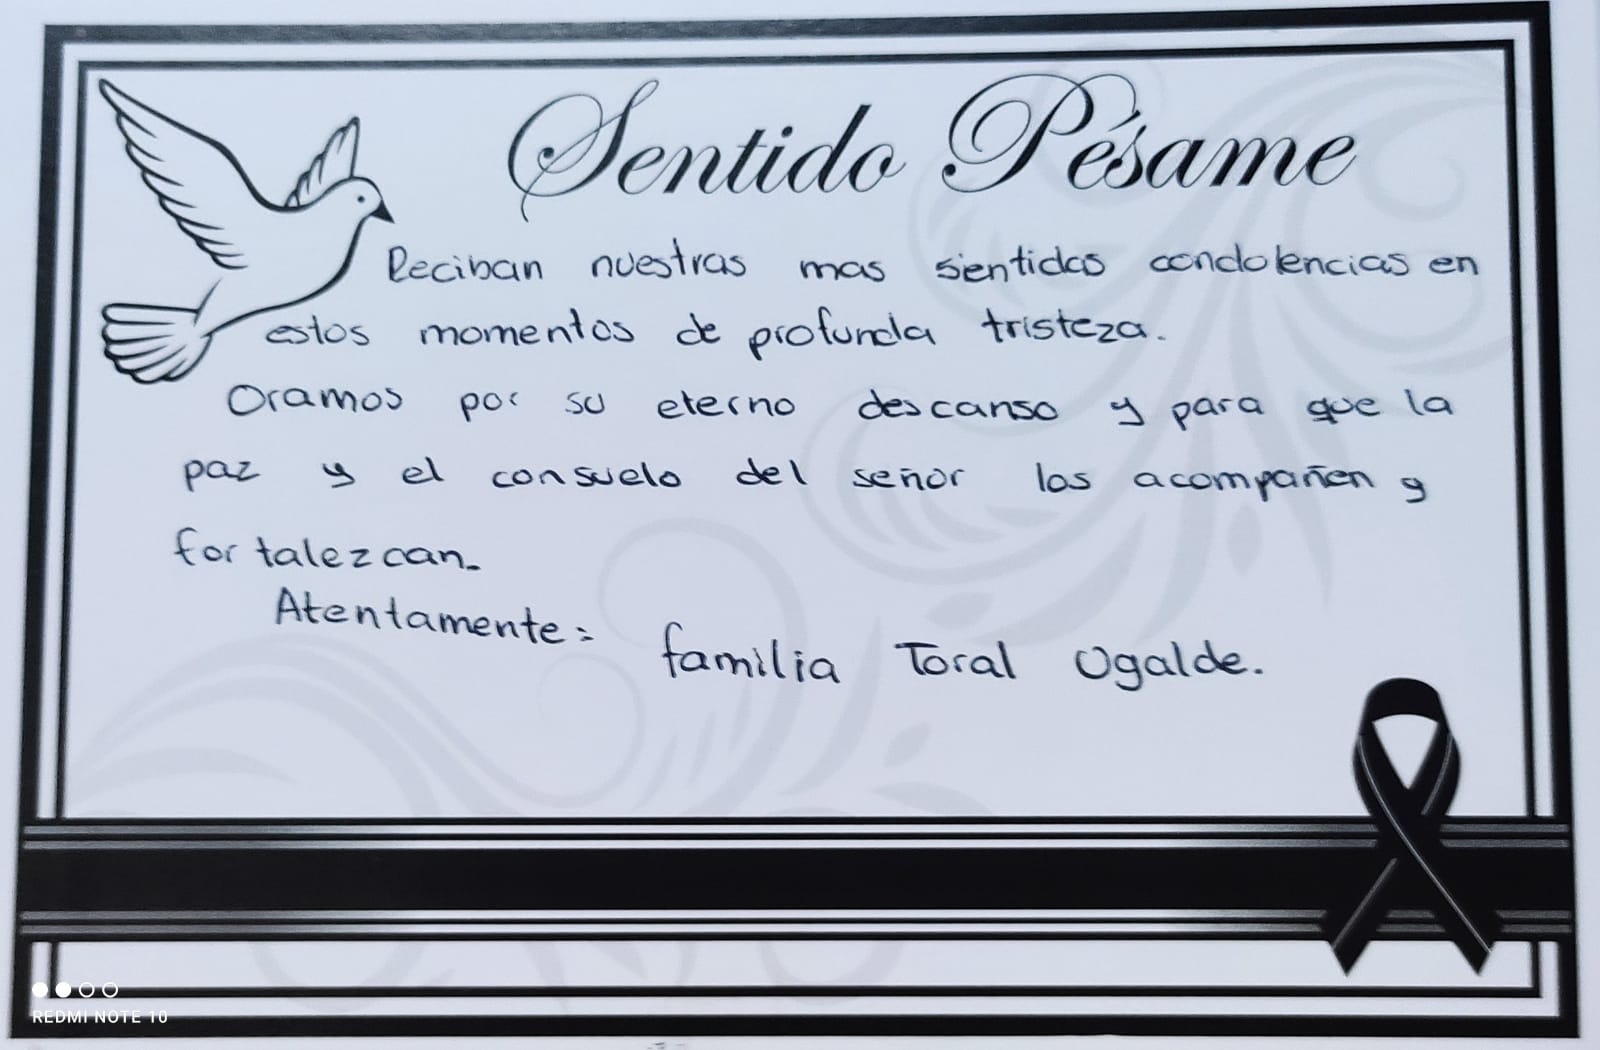 Sentido Pésame
Reciban nuestras mas sientidas condolencias en
estos momentos de profunda tristeza.
Oramos por su eterno descanso y para que la
paz y el consuelo del señor los acompañen y
fortalezcan.
Atentamente: familia Toral Ugalde.
REDMI NOTE 10